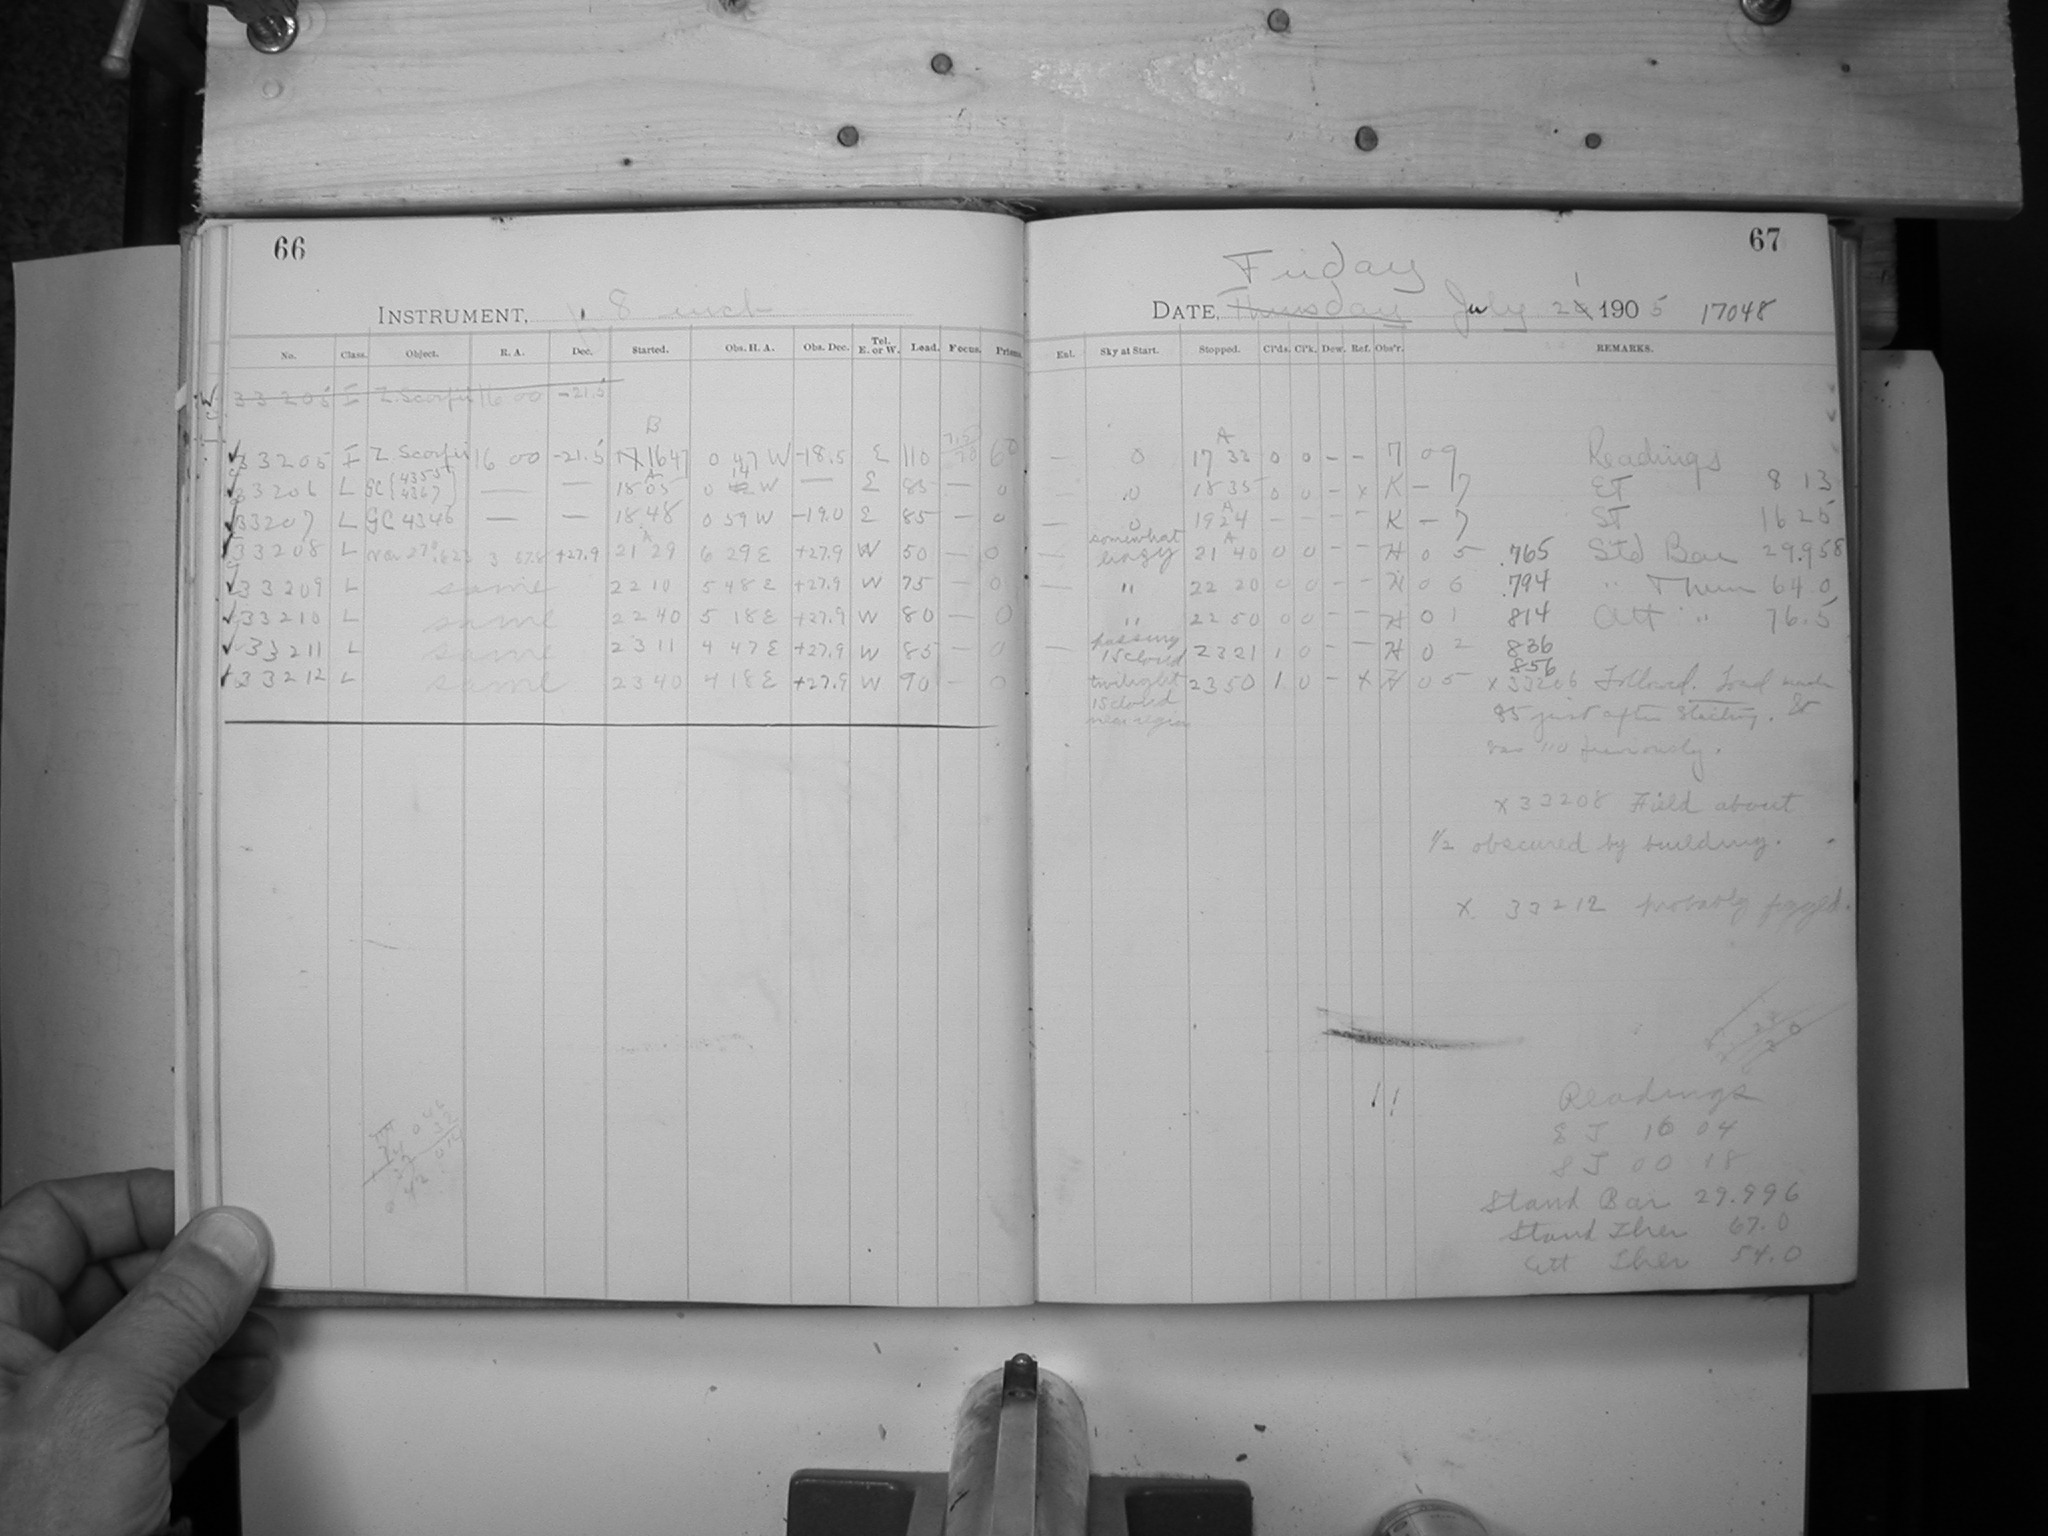 66
INSTRUMENT, 8 inch
No. Class. Object. R. A. Dec. Started. Obs. H. A. Obs. Dec. Tel. E. or W. Load. Focus. Prisms.
33205 I Z. Scorpii 16 00 -21.5
B
33205 I Z. Scorpii 16 00 -21.5 1647 0 47 W -18.5 E 110 60
33206 L GC {4355 4367} — — 18 05 0 14 W — E 85 — 0
33207 L GC 4346 — — 18 48 0 59 W -19.0 E 85 — 0
33208 L +27.9 21 29 6 29 E +27.9 W 50 — 0
33209 L same 22 10 5 48 E +27.9 W 75 — 0
33210 L same 22 40 5 18 E +27.9 W 80 — 0
33211 L same 23 11 4 47 E +27.9 W 85 — 0
33212 L same 23 40 4 18 E +27.9 W 90 — 0
67
Friday
DATE, Thursday July 21 1905 17048
Ent. Sky at Start. Stopped. Cl'ds. Cl'k. Dew. Ref. Obs'r. REMARKS.
A
— 0 17 33 0 0 - - 7 09 Readings
0 18 35 0 0 - x K - 7 ET 8 13
— 0 19 24 - - - - K - 7 ST 16 25
somewhat hazy 21 40 0 0 - - H 0 5 .765 Std Bar 29.958
— " 22 20 0 0 - - H 0 0 .794 " Therm 64.0
" 22 50 0 0 - - H 0 1 814 Att " 76.5
— passing 1 S cloud 23 21 1 0 - - H 0 2 836
856
twilight 23 50 1 0 - x H 0 5 x 33206 Followed. Load made
1 S cloud near region
85 just after starting. It
was 110 previously.
x 33208 Field about
1/2 obscured by building.
x. 33212 probably fogged.
Readings
S T 16 04
S T 00 18
Stand Bar 29.996
Stand Ther 67.0
Att Ther 54.0